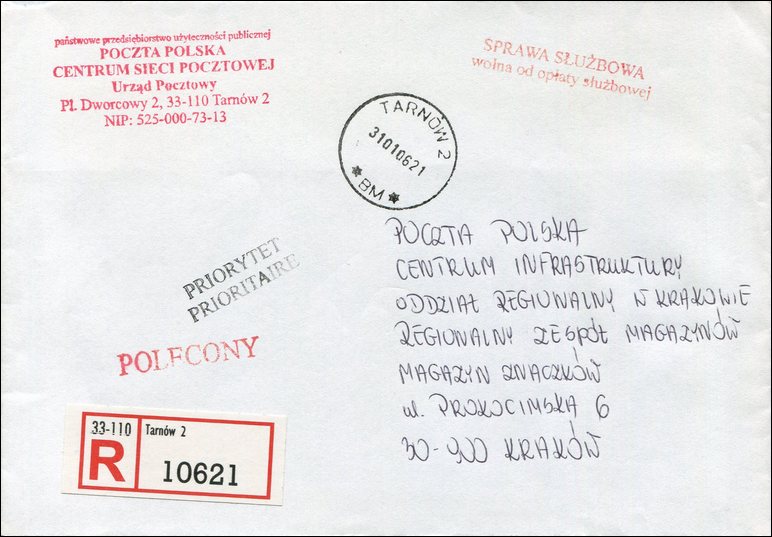 państwowe przedsiębiorstwo użyteczności publicznej
POCZTA POLSKA
CENTRUM SIECI POCZTOWEJ
Urząd Pocztowy
Pl. Dworcowy 2, 33-110 Tarnów 2
NIP: 525-000-73-13
SPRAWA SŁUŻBOWA
wolna od opłaty służbowej
TARNÓW 2
31010621
* BM *
POCZTA POLSKA
CENTRUM INFRASTRUKTURY
ODDZIAŁ REGIONALNY W KRAKOWIE
REGIONALNY ZESPÓŁ MAGAZYNÓW
MAGAZYN ZNACZKÓW
ul. PROKOCIMSKA 6
30-900 KRAKÓW
PRIORYTET
PRIORITAIRE
POLECONY
33-110 Tarnów 2
R 10621